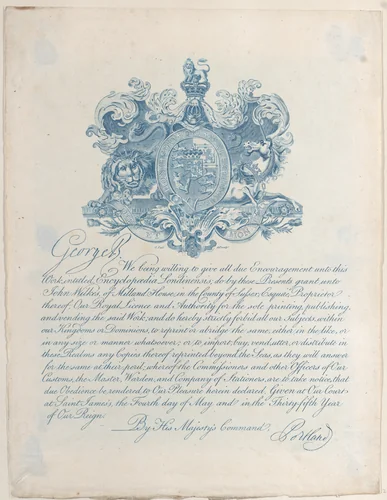 George R
We being willing to give all due Encouragement unto this
Work, entitled, Encyclopædia Londinensis; do by these Presents grant unto
John Wilkes, of Milland House, in the County of Sussex, Esquire, Proprietor
thereof Our Royal Licence and Authority for the sole printing, publishing,
and vending the said Work; and do hereby strictly forbid all our Subjects, within
our Kingdoms or Dominions, to reprint or abridge the same, either in the like, or
in any size or manner whatsoever; or to import, buy, vend, utter, or distribute in
these Realms any Copies thereof reprinted beyond the Seas, as they will answer
for the same at their peril; whereof the Commissioners and other Officers of Our
Customs, the Master, Warden, and Company of Stationers, are to take notice, that
due Obedience be rendered to Our Pleasure herein declared. Given at Our Court
at Saint James's, the Fourth day of May, and in the Thirty-fifth Year
of Our Reign.
By His Majesty's Command,
Portland